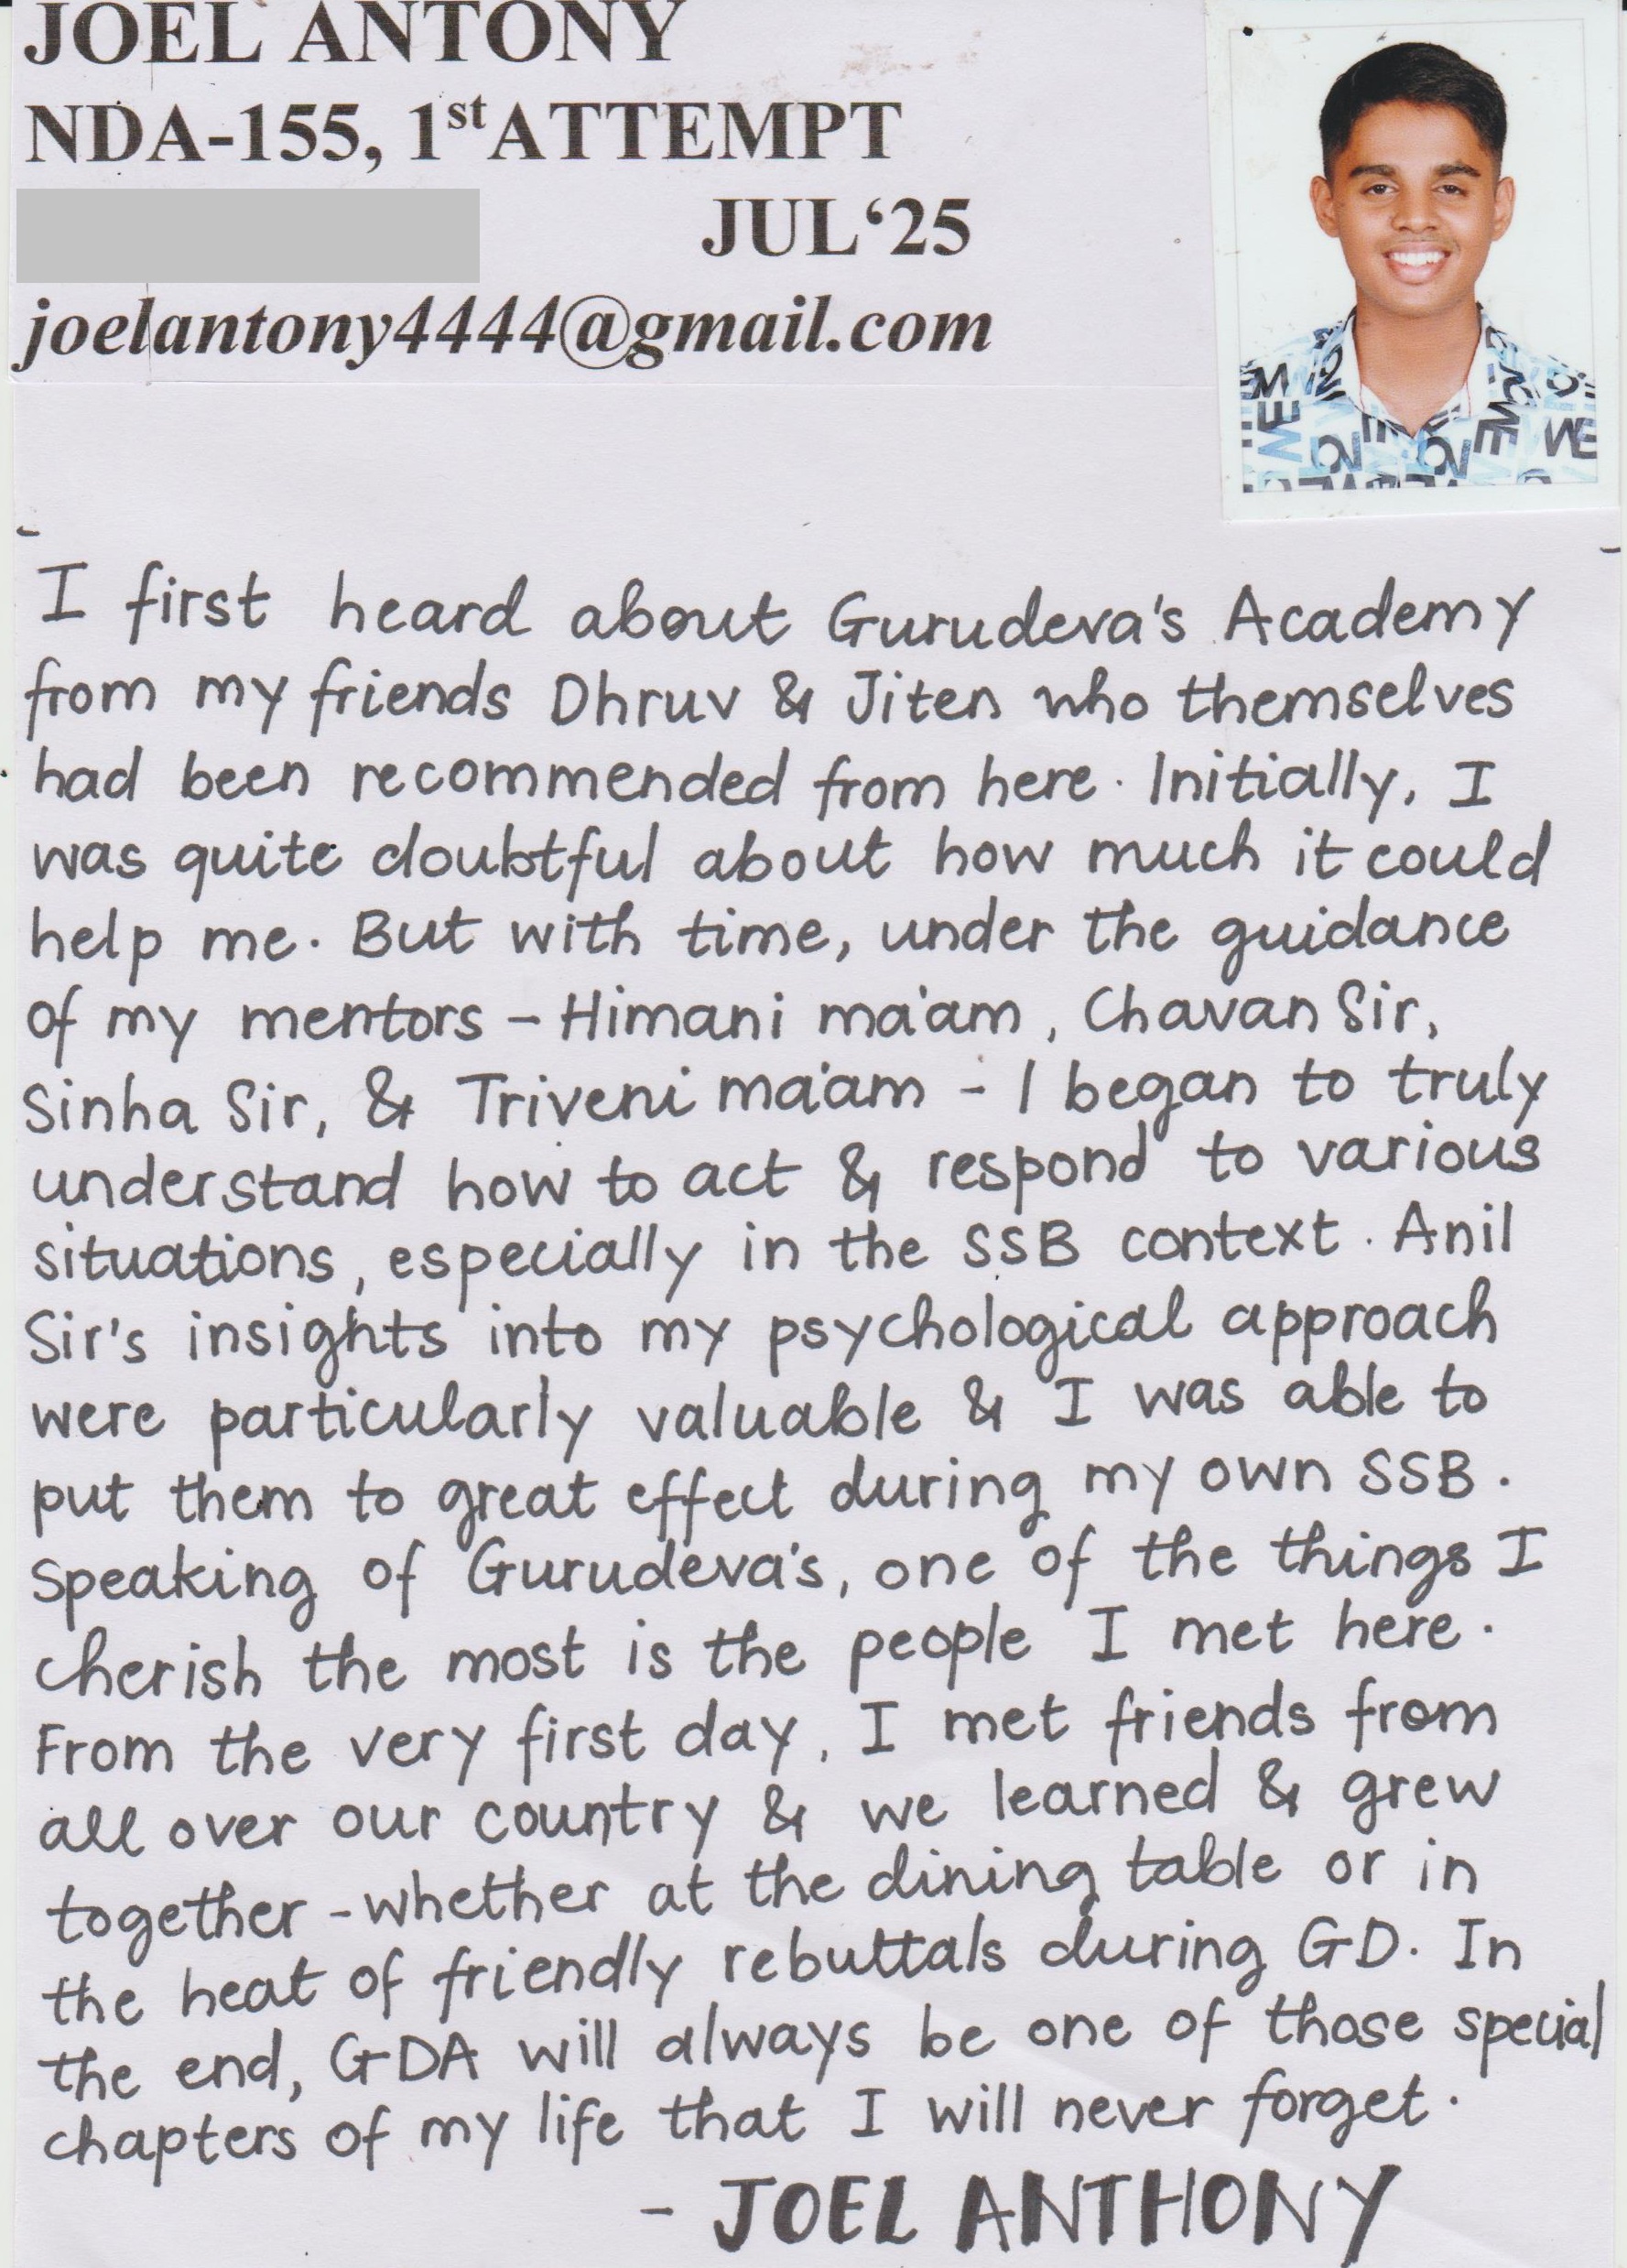 JOEL ANTONY
NDA-155, 1st ATTEMPT
JUL‘25
joelantony4444@gmail.com
I first heard about Gurudeva's Academy
from my friends Dhruv & Jiten who themselves
had been recommended from here. Initially, I
was quite doubtful about how much it could
help me. But with time, under the guidance
of my mentors - Himani ma'am, Chavan Sir,
Sinha Sir, & Triveni ma'am - I began to truly
understand how to act & respond to various
situations, especially in the SSB context. Anil
Sir's insights into my psychological approach
were particularly valuable & I was able to
put them to great effect during my own SSB.
Speaking of Gurudeva's, one of the things I
cherish the most is the people I met here.
From the very first day, I met friends from
all over our country & we learned & grew
together - whether at the dining table or in
the heat of friendly rebuttals during GD. In
the end, GDA will always be one of those special
chapters of my life that I will never forget.
- JOEL ANTHONY